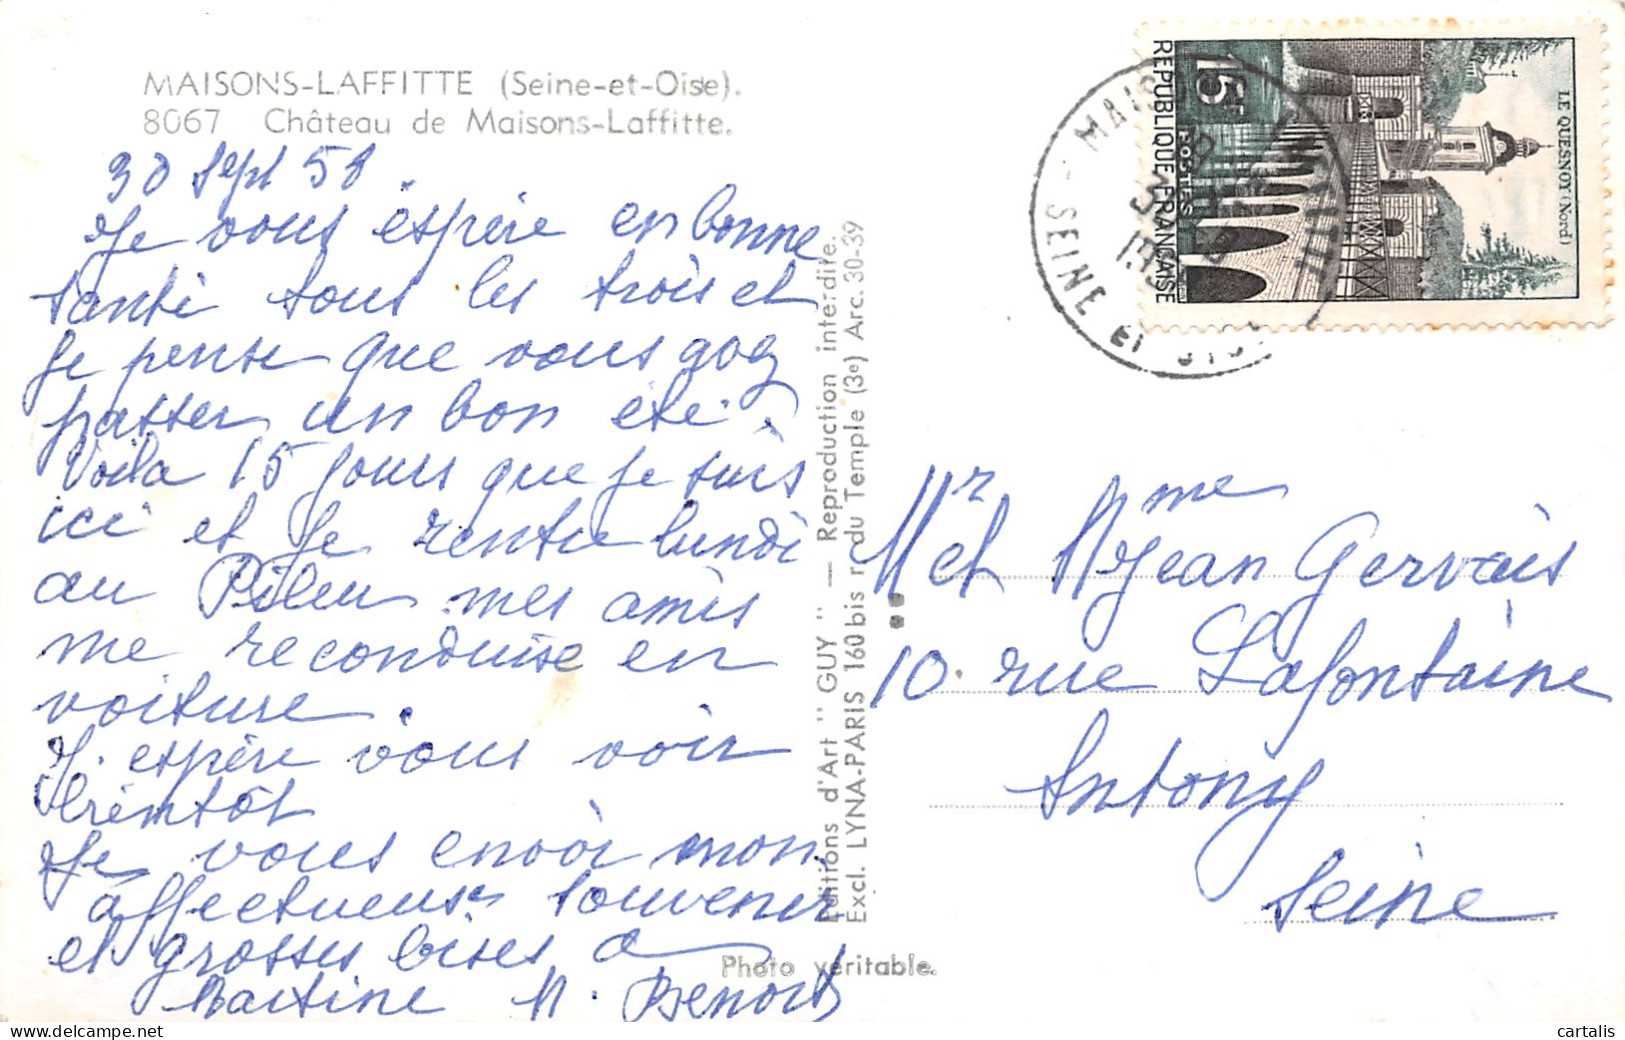 MAISONS-LAFFITTE (Seine-et-Oise).
8067 Château de Maisons-Laffitte.
30 Sept 58.
Je vous espère en bonne
santé tous les trois et
je pense que vous avez
passer un bon été.
Voila 15 jours que je suis
ici et je rentre lundi
au Pileu mes amis
me reconduise en
voiture.
J'espère vous voir
bientôt
Je vous envoi mon
affectueux souvenir
et grosses bises a
Martine M. Benoist
Editions d'Art "GUY" — Reproduction interdite.
Excl. LYNA-PARIS 160 bis r. du Temple (3e) Arc. 30-39
Photo véritable.
LE QUESNOY (Nord)
15F
POSTES
REPUBLIQUE FRANÇAISE
SEINE ET OISE
Mr et Mme Jean Gervais
10. rue Lafontaine
Antony
Seine
cartalis